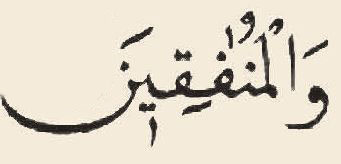 وَالْمُنٰفِقِينَ